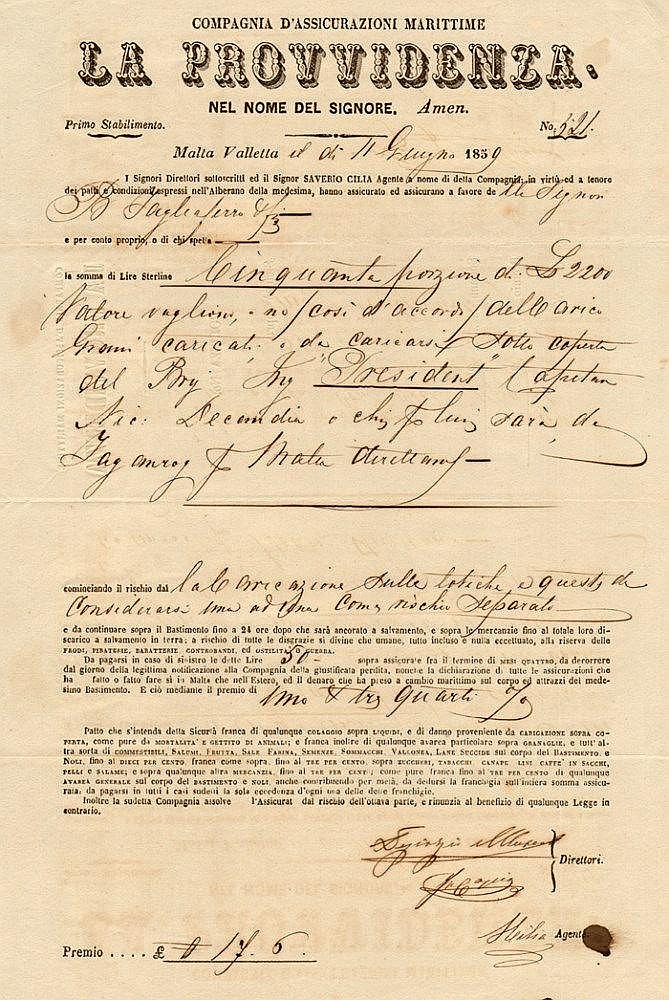 COMPAGNIA D'ASSICURAZIONI MARITTIME
LA PROVVIDENZA.
NEL NOME DEL SIGNORE. Amen.
Primo Stabilimento.
No. 521.
Malta Valletta il di 11 Giugno 1859
I Signori Direttori sottoscritti ed il Signor SAVERIO CILIA Agente a nome di detta Compagnia, in virtù ed a tenore
dei patti e condizioni espressi nell'Alberano della medesima, hanno assicurato ed assicurano a favore de lli Signori
B Tagliaferro & fi
e per conto proprio, o di chi spetta
la somma di Lire Sterline Cinquanta porzione di £2200
Valore vaglioni, o no / così d'accordo / del Carico
Grani caricati o da caricarsi sotto coperta
del Brig Ing "President" Capitan
Nic: Decandia o chi p lui sarà, da
Taganrog p Malta direttamte
cominciando il rischio dal la Caricazione sulle lotiche e questi da
Considerarsi una ad una come rischio Separato
e da continuare sopra il Bastimento fino a 24 ore dopo che sarà ancorato a salvamento, e sopra le mercanzie fino al totale loro di-
scarico a salvamento in terra; a rischio di tutte le disgrazie sì divine che umane, tutto incluso e nulla eccettuato, alla riserva delle
FRODI, PIRATERIE, BARATTERIE CONTROBANDI, ed OSTILITÀ O GUERRA.
Da pagarsi in caso di sinistro le dette Lire 50 - sopra assicurate fra il termine di MESI QUATTRO, da decorrere
dal giorno della legittima notificazione alla Compagnia della giustificata perdita, nonchè la dichiarazione di tutte le assicurazioni che
ha fatto o fatto fare sì in Malta che nell'Estero, ed il denaro che ha preso a cambio marittimo sul corpo ed attrazzi del mede-
simo Bastimento. E ciò mediante il premio di uno & tre quarti %
Patto che s'intenda della Sicurtà franca di qualunque COLAGGIO sopra LIQUIDI, e di danno proveniente da CARIGAZIONE SOPRA CO-
PERTA, come pure da MORTALITA' E GETTITO DI ANIMALI; e franca inoltre di qualunque avarea particolare sopra GRANAGLIE, e tutt'al-
tra sorta di COMMESTIBILI, SALUMI, FRUTTA, SALE FARINA, SEMENZE, SOMMACCHI, VALLONEA, LANE SUCCIDE sul corpo del BASTIMENTO, e
NOLI, fino al DIECI PER CENTO, franca come sopra, fino al TRE PER CENTO, sopra ZUCCHERI, TABACCHI CANAPE LINI CAFFE' IN SACCHI,
PELLI E SALAME; e sopra qualunque altra MERCANZIA, fino al TRE PER CENTO; come pure franca fino al TRE PER CENTO di qualunque
AVAREA GENERALE sul corpo del BASTIMENTO e NOLI, anche contribuendo per metà, da dedursi la franchigia sull'intiera somma assicu-
rata, da pagarsi in tutti i casi sudetti la sola eccedenza d'ogni una delle dette franchigie.
Inoltre la sudetta Compagnia assolve l'Assicurat dal rischio dell'ottava parte, e rinunzia al benefizio di qualunque Legge in
contrario.
Direttori.
SCilia Agente
Premio .... £ 0 17. 6.